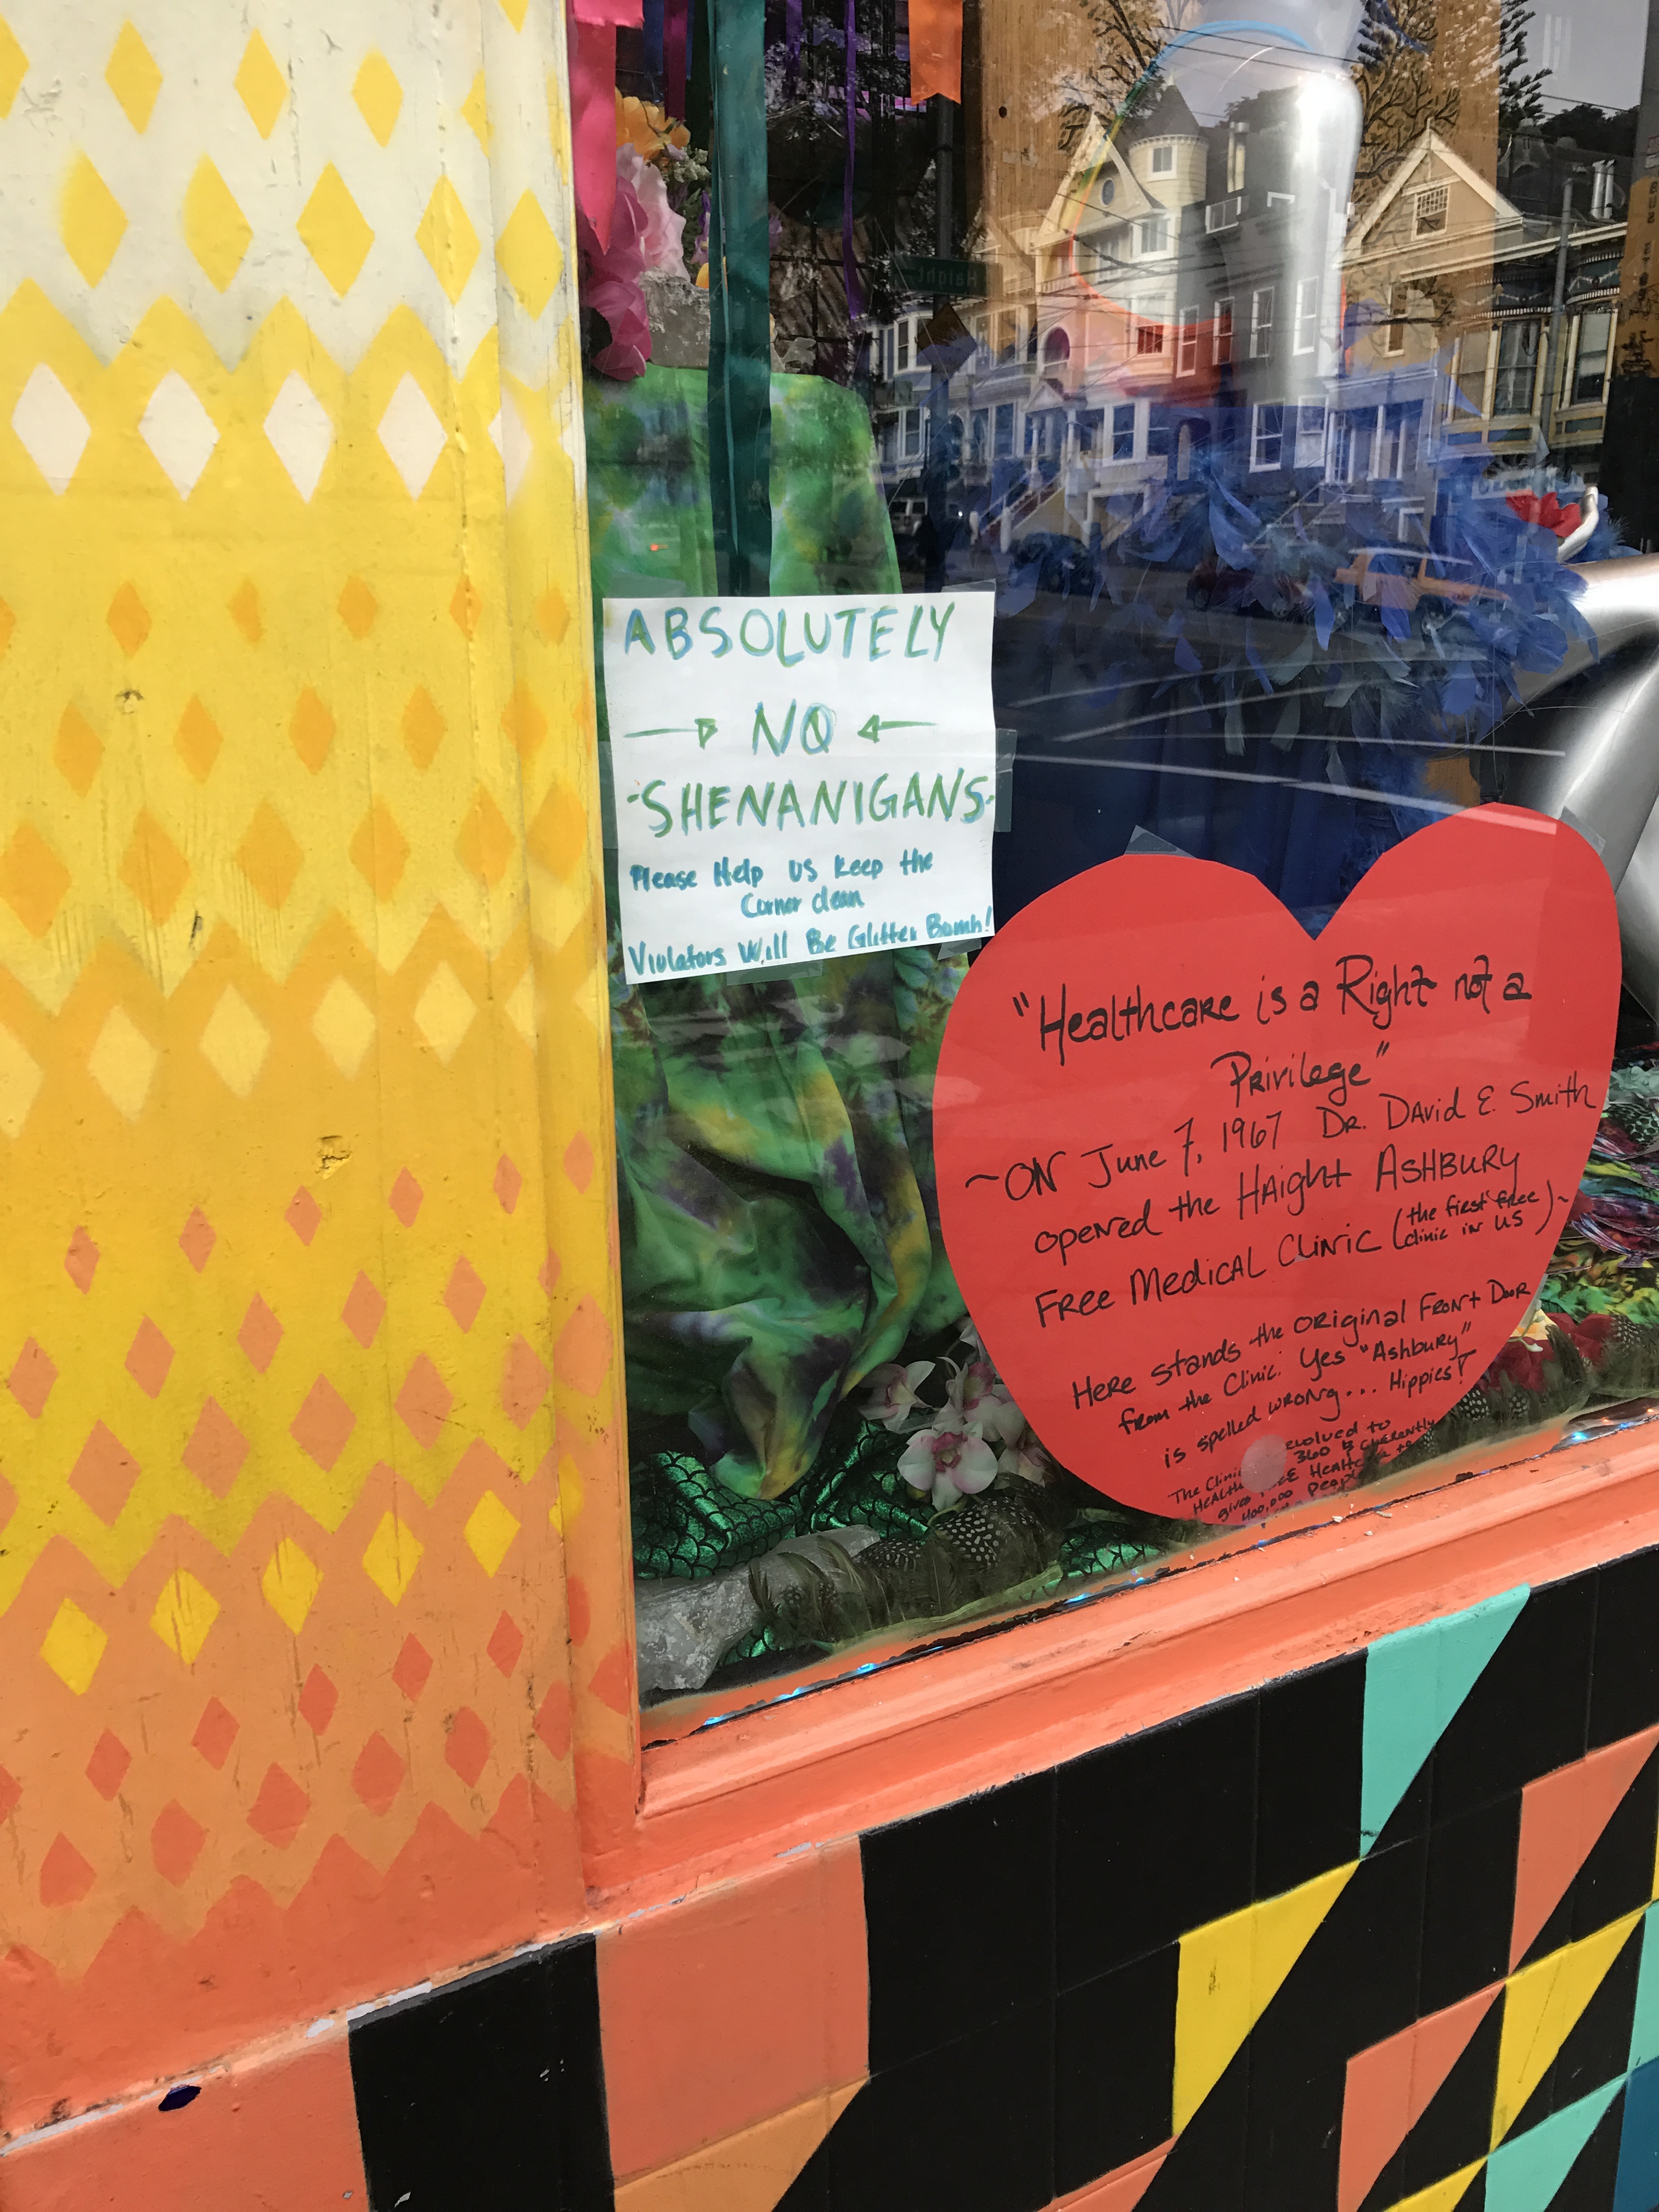 ABSOLUTELY
NO
-SHENANIGANS-
Please Help us keep the
Corner clean
Violators Will Be Glitter Bomb!
"Healthcare is a Right not a
Privilege"
~ON June 7, 1967 DR. DAvid E. Smith
opened the HAight ASHBURY
FREE MedicAL CliNiC (the first free clinic in US)~
HERE stands the ORiginal FRONt DOOR
from the Clinic. Yes "Ashbury"
is spelled WRONg... Hippies!
evolved to
The Clinic 360 & CURRENtly
HEALth
gives FREE HealthCare to
400,000 people
Haight